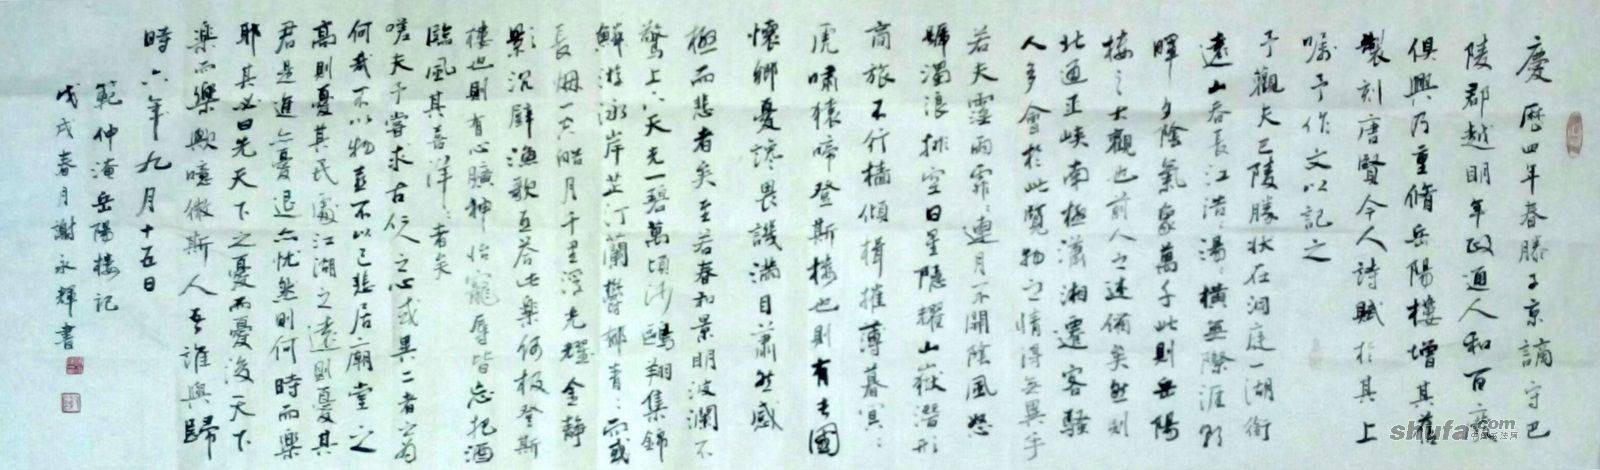 慶歷四年春滕子京謫守巴
陵郡越明年政通人和百廢
俱興乃重脩岳陽樓增其舊
製刻唐賢今人詩賦於其上
囑予作文以記之
予觀夫巴陵勝狀在洞庭一湖銜
遠山吞長江浩〻湯〻橫無際涯朝
暉夕陰氣象萬千此則岳陽
樓之大觀也前人之述備矣然則
北通巫峽南極瀟湘遷客騷
人多會於此覽物之情得無異乎
若夫霪雨霏〻連月不開陰風怒
號濁浪排空日星隱耀山嶽潛形
商旅不行檣傾楫摧薄暮冥〻
虎嘯猿啼登斯樓也則有去國
懷鄉憂讒畏譏滿目蕭然感
極而悲者矣至若春和景明波瀾不
驚上下天光一碧萬頃沙鷗翔集錦
鱗游泳岸芷汀蘭鬱郁青〻而或
長煙一空皓月千里浮光耀金靜
影沉璧漁歌互答此樂何極登斯
樓也則有心曠神怡寵辱皆忘把酒
臨風其喜洋〻者矣
嗟夫予嘗求古仁人之心或異二者之為
何哉不以物喜不以己悲居廟堂之
高則憂其民處江湖之遠則憂其
君是進亦憂退亦忧然則何時而樂
耶其必曰先天下之憂而憂後天下
樂而樂歟噫微斯人吾誰與歸
時六年九月十五日
範仲淹岳陽樓記
戊戌春月謝永輝書
shufa.com